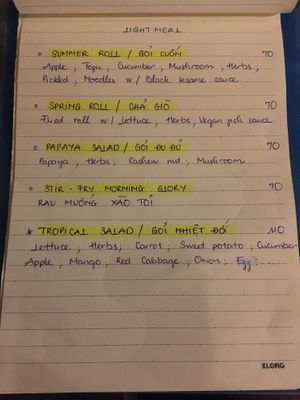 LIGHT MEAL
○ SUMMER ROLL / GỎI CUỐN 70
Apple, Tofu, Cucumber, Mushroom, Herbs,
Pickled, Noodles w/ Black sesame sauce
○ SPRING ROLL / CHẢ GIÒ 70
Fried roll w/ lettuce, Herbs, Vegan fish sauce
○ PAPAYA SALAD / GỎI ĐU ĐỦ 70
Papaya, Herbs, Cashew nut, Mushroom
○ STIR-FRY MORNING GLORY 70
RAU MUỐNG XÀO TỎI
* TROPICAL SALAD / GỎI NHIỆT ĐỚI 110
Lettuce, Herbs, Carrot, Sweet potato, Cucumber
Apple, Mango, Red Cabbage, Onion, Egg
KLONG